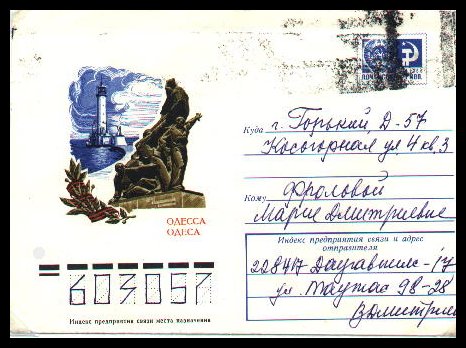 ПОЧТА СССР
Куда г. Горький, Д-57
Косогорная ул 4 кв, 3
Кому Фроловой
Марие Дмитриевне
ОДЕССА
ОДЕСА
Индекс предприятия связи и адрес
отправителя
228417 Даугавпилс-
ул. Таутас 98-28
603057
Индекс предприятия связи места назначения